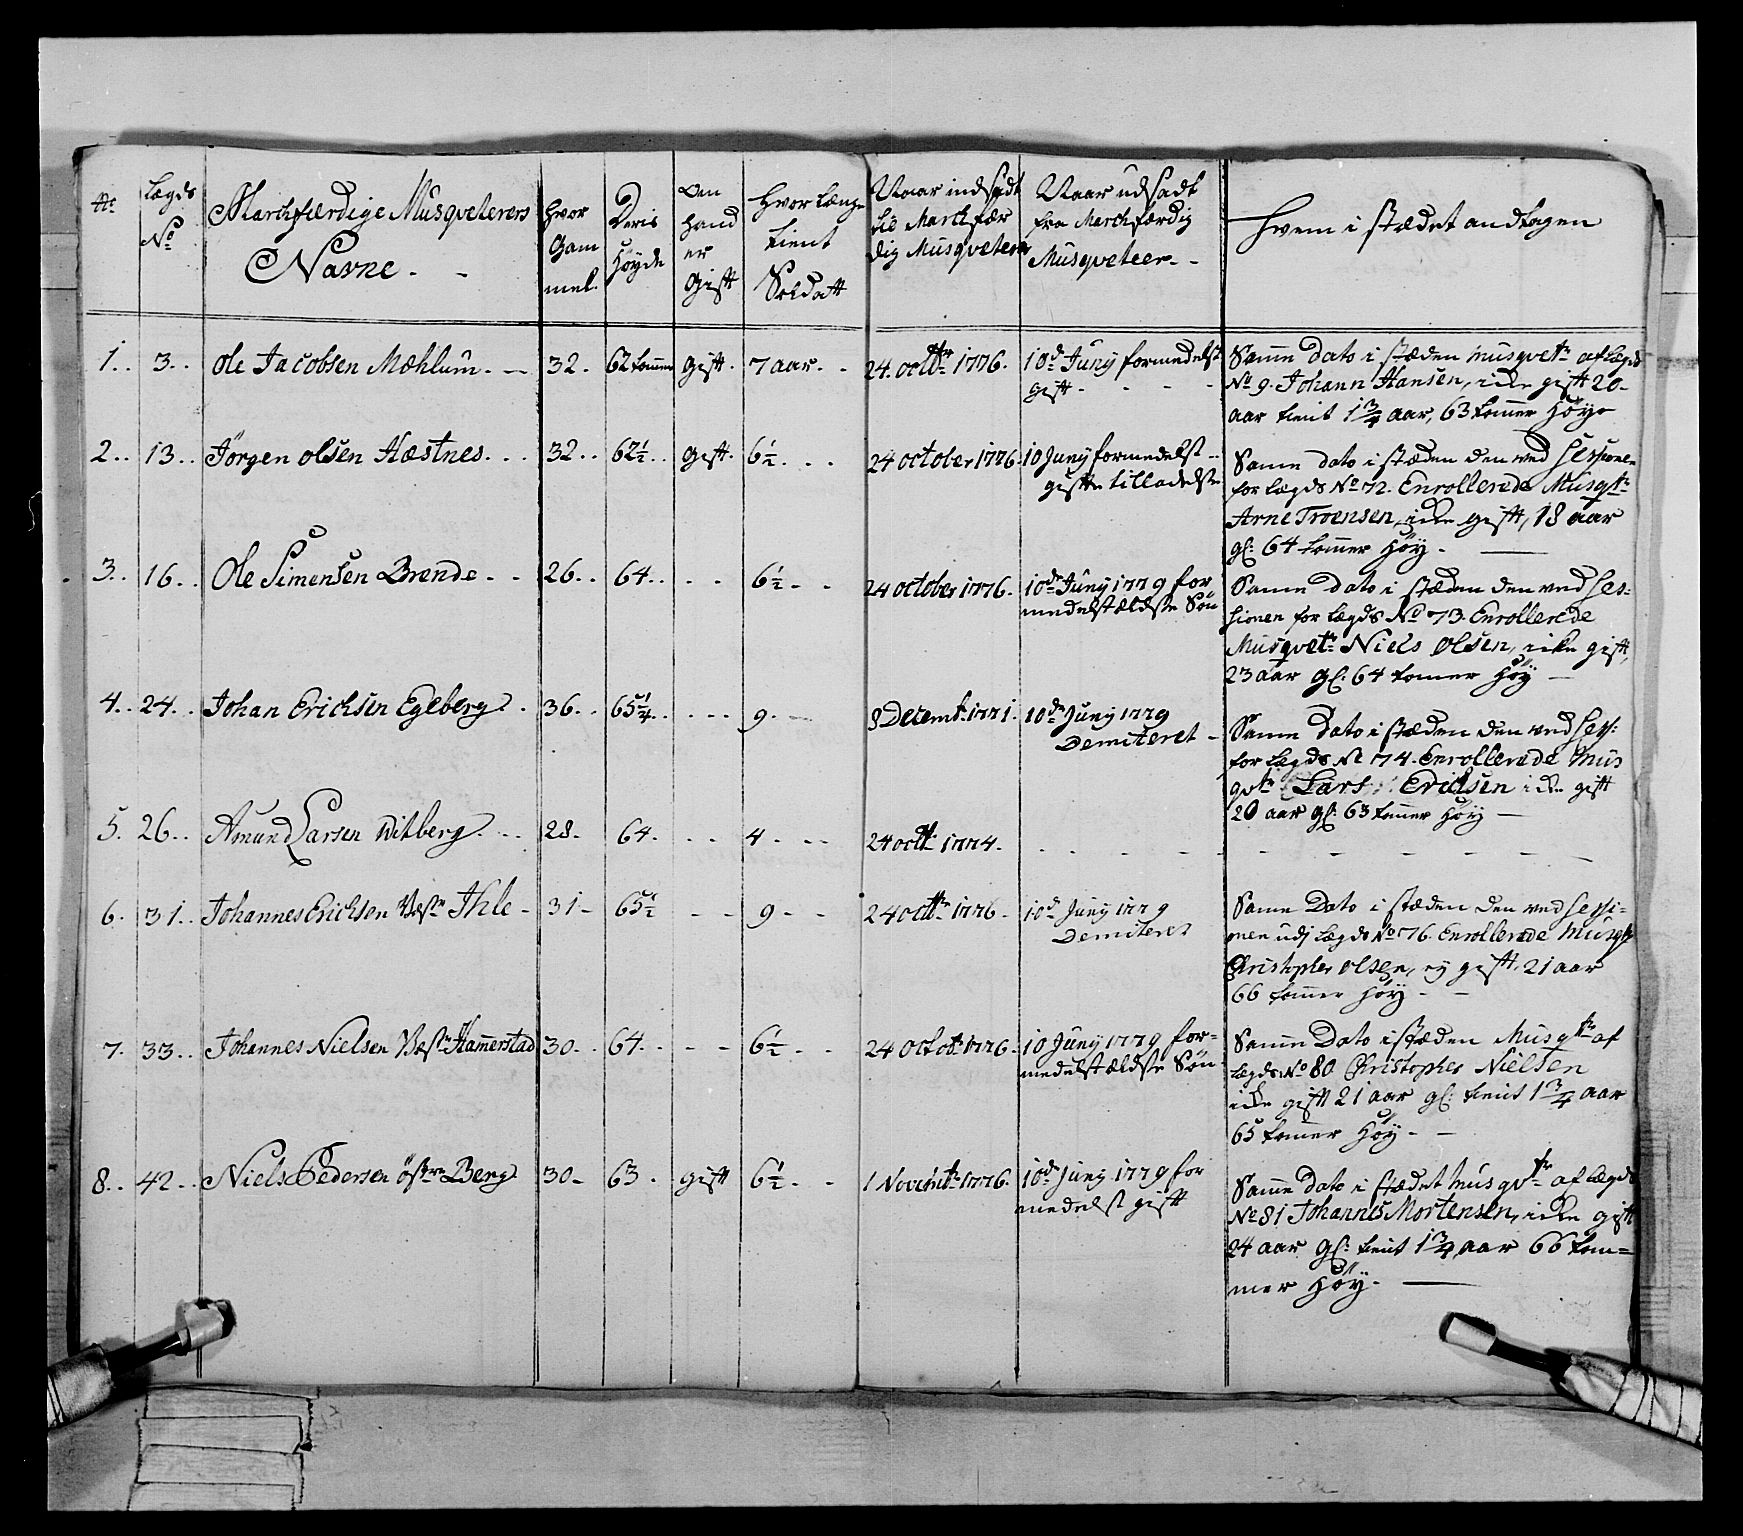 No
Lægds
No
Marchfærdige Musqveterers
Navne. -
Hvor
Gam
mel.
Deris
Höyde
Om
hand
er
Gift
Hvor Længe
tient
Soldatt
Naar indsadt
til Marchfær
dig Musqveteer
Naar udsadt
fra Marchfærdig
Musqveteer. -
Hvem i stædet andtagen
1. 3. Ole Jacobsen Mæhlum. - 32. 62 tommer Gift. 7 aar. - 24. octbr 1776. 10de Juny formedelst
gift - - - -
Samme Dato i stæden musqvetr af Lægd
No 9. Johann Hansen, icke gift 20
aar tient 1 3/4 aar, 63 tommer Höye
2. 13. Jörgen Olsen Hæstnes. 32. 62 1/2. gift. 6 1/2. 24 October 1776 10 Juny formedelst
gifte tilladelse
Samme dato i stæden den ved Sessionen
for Lægds No 72. Enrollerede Musqtr
Arne Troensen, icke gift, 18 aar
gl: 64 tommer Höy. -
3. 16. Ole Simensen Brende. 26. 64. - - 6 1/2. 24 October 1776. 10de Juny 1779 for
medelst ældste Sön
Samme Dato i stæden den ved Ses-
sionen for Lægds No 73. Enrollerede
Musqvetr Niels Olsen, icke gift,
23 aar gl: 64 tomer Höy -
4. 24. Johan Erichsen Egeberg. 36. 65 1/4. - - - 9. 8 Decembr 1771. 10de Juny 1779
Demiteret -
Samme Dato i stæden den ved Sess:
for Lægds No 74. Enrollerede Mus
qvtr Lars Ericksen icke gift
20 aar gl: 63 tommer Höy -
5. 26. Amund Larsen Witberg. 28. 64. - - 4. - - 24 octbr 1774. - - - - -
6. 31. Johannes Erichsen Vestr Ihle - 31 - 65 1/2 - - 9 - - 24 octbr 1776 - 10de Juny 1779
Demiteret
Same Dato i stæden den ved Sessi-
onen udj Lægds No 76. Enrollerede Musqtr
Christopher Olsen, ey gift, 21 aar
66 tommer Höy - -
7. 33. Johannes Nielsen Vestr Hammerstad 30. 64. - - - 6 1/2. 24 Octobr 1776. 10 Juny 1779 for-
medelst ældste Sön
Samme Dato i stæden Musqtr af
Lægds No 80 Christopher Nielsen
icke gift 21 aar gl: tient 1 3/4 aar
65 tommer Höy - -
8. 42. Niels Pedersen östre Berg 30 - 63. gift 6 1/2. - 1 Novembr 1776. 10de Juny 1779 for
medelst gift
Samme Dato i stædet Musqvtr af Lægd
No 81 Johannes Mortensen, icke gift
24 aar gl: tient 1 3/4 aar 66 tom-
mer Höy. -